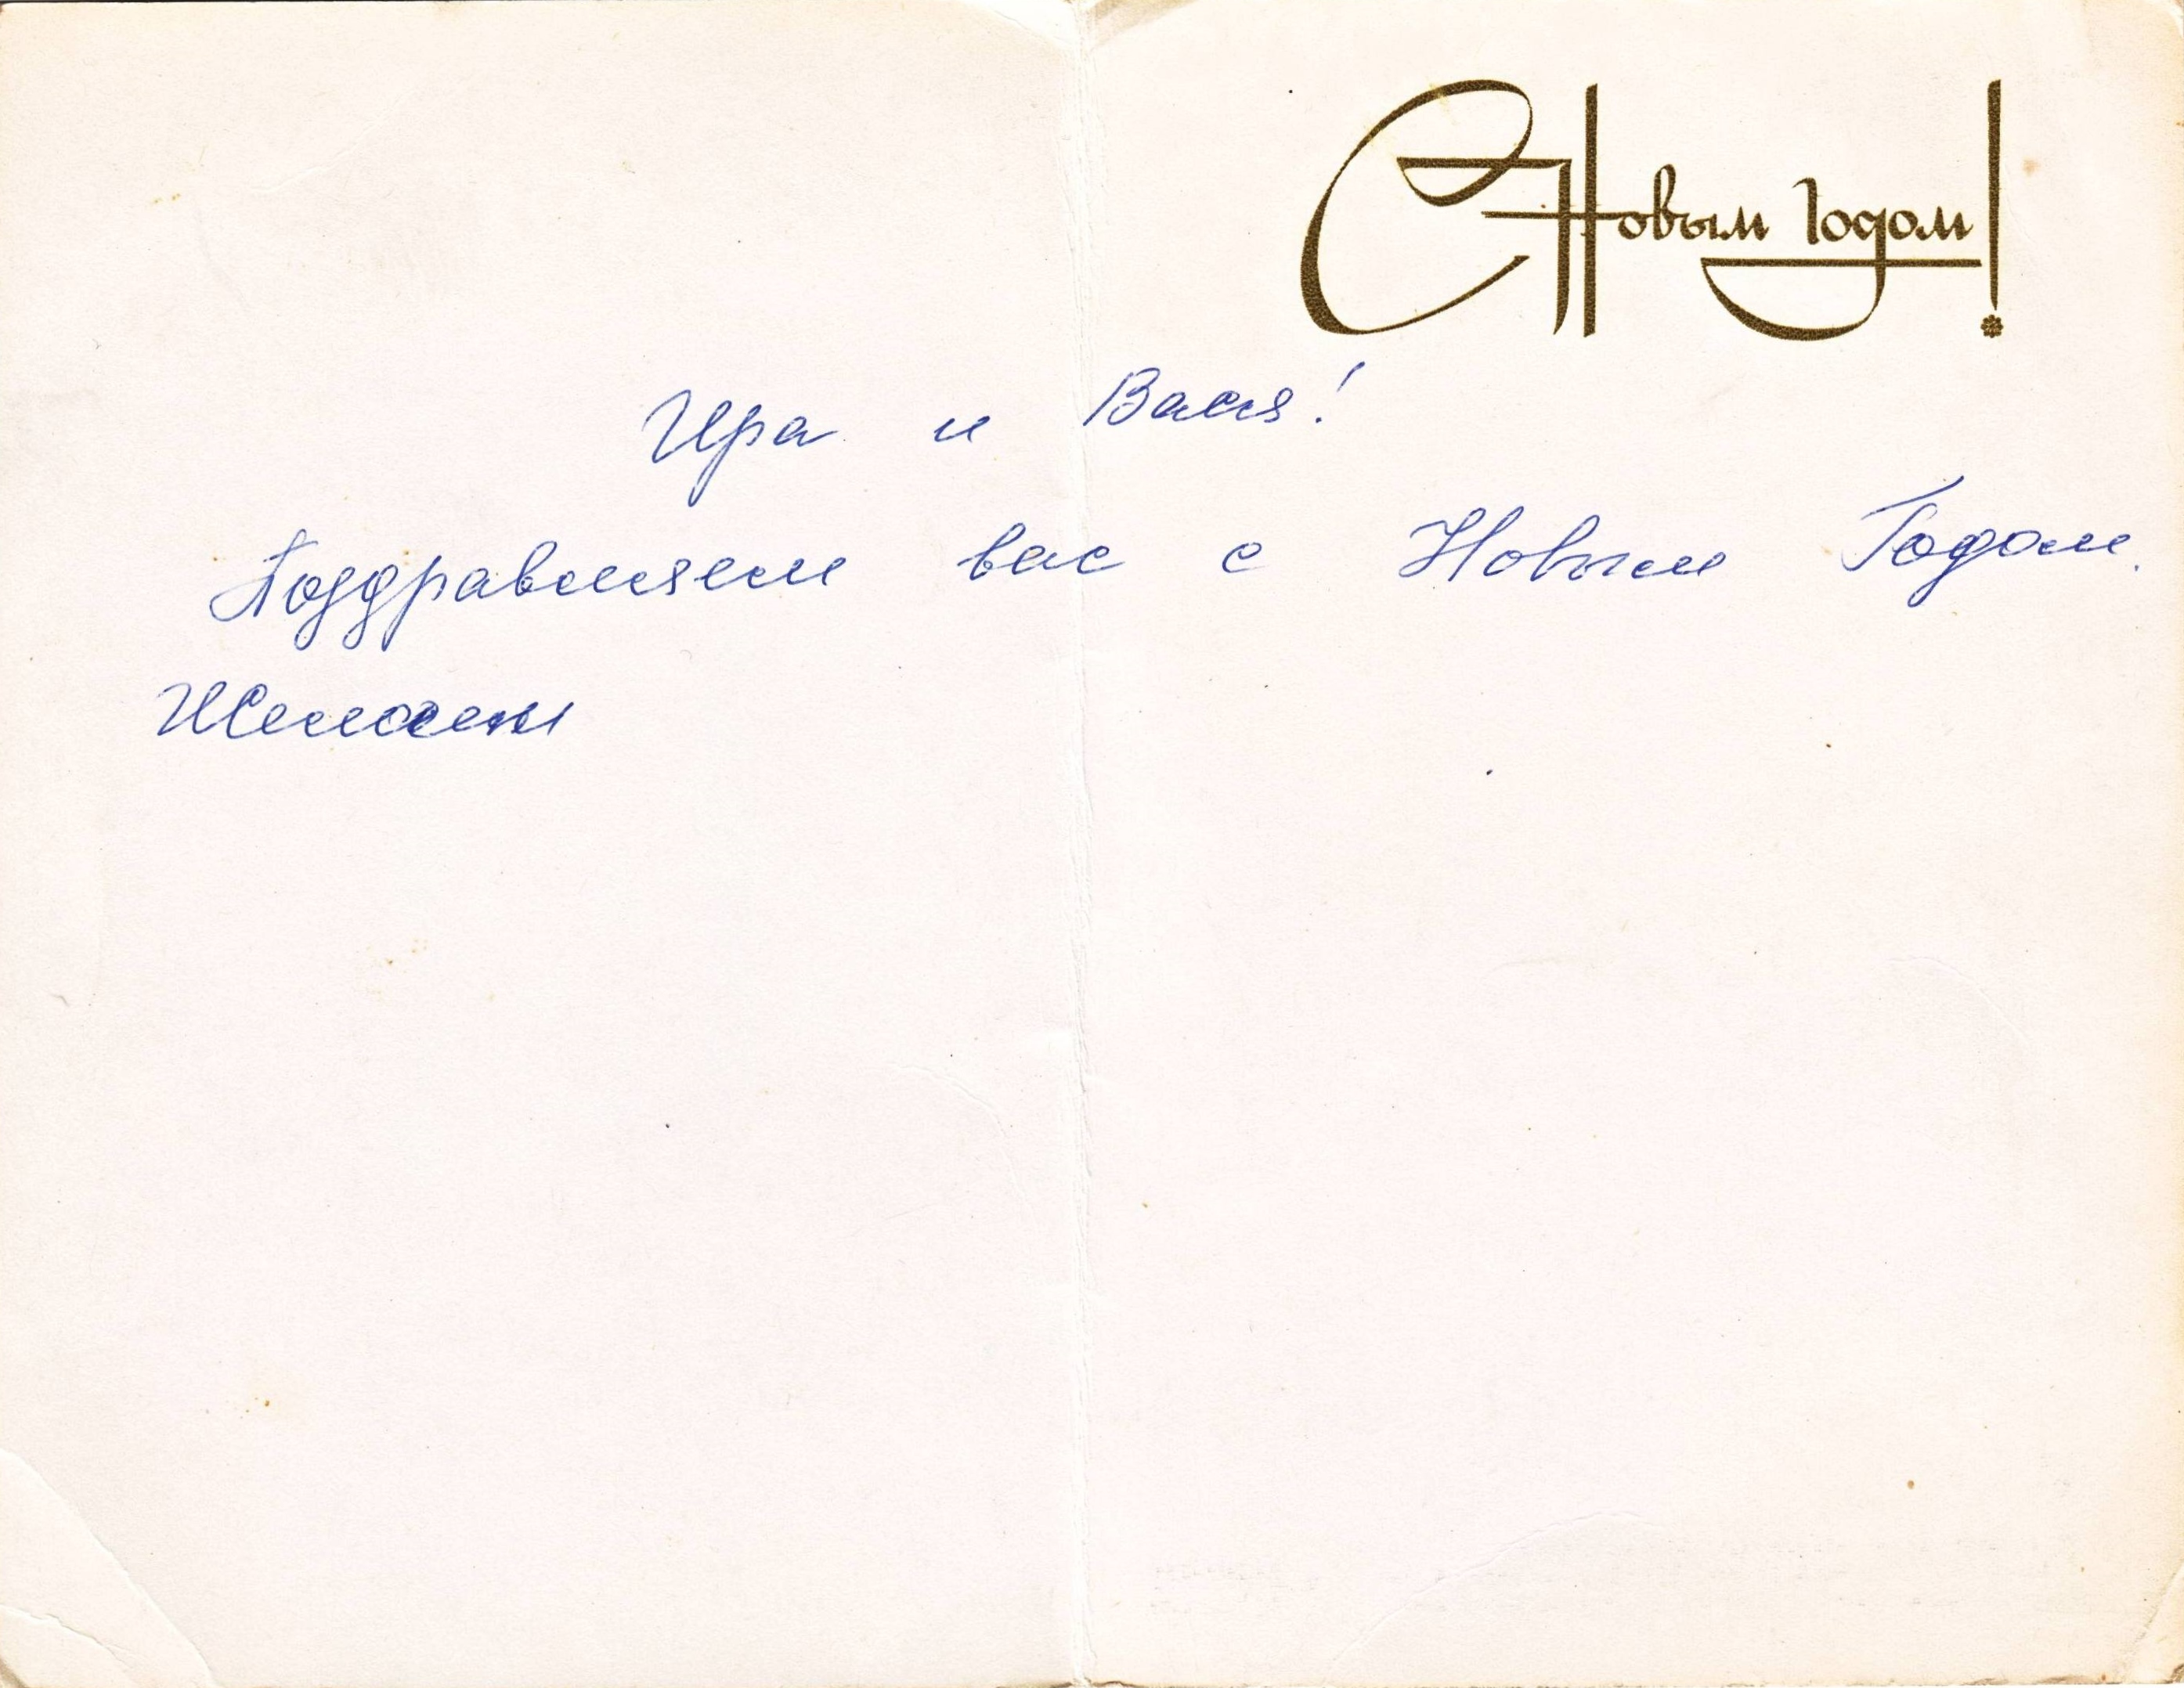 С Новым Годом!
Ира и Вася!
Поздравляем вас с Новым Годом.